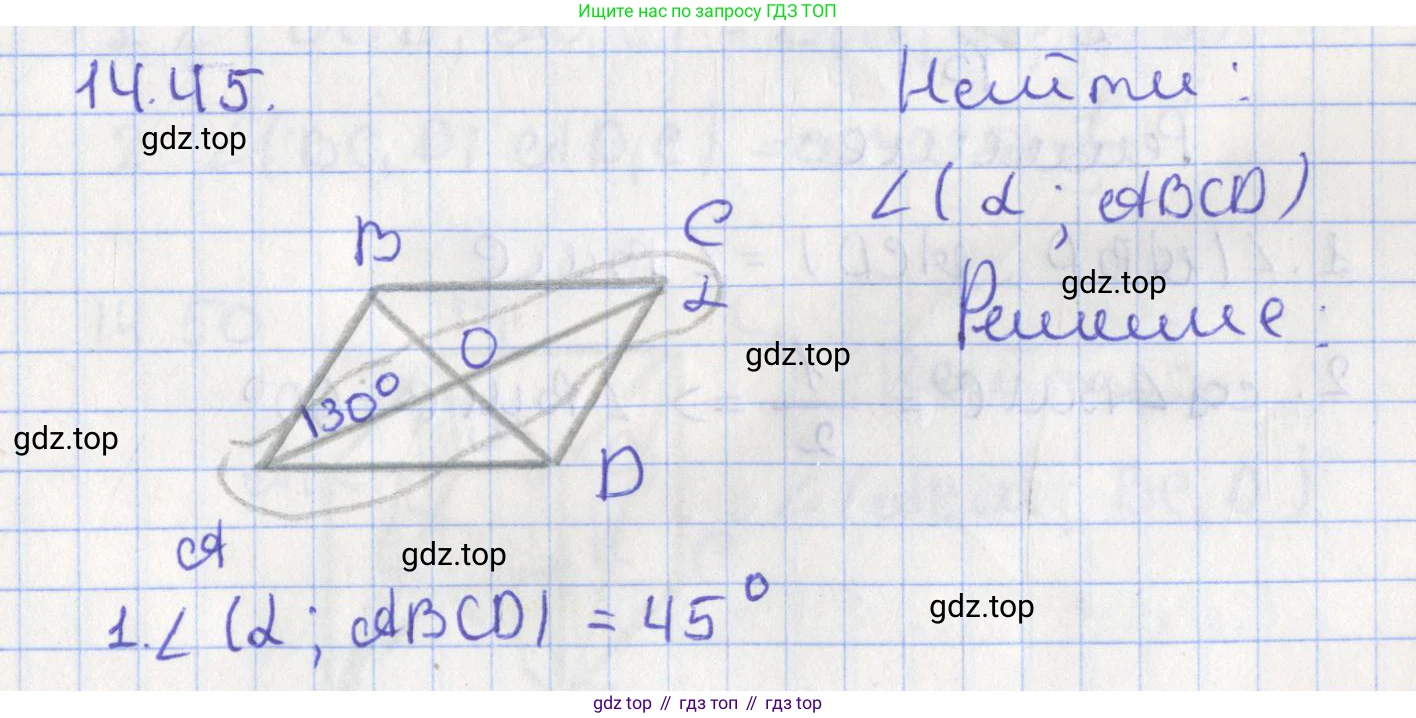 Ищите нас по запросу ГДЗ ТОП
14.45.
Найти:
gdz.top
∠(α; ABCD)
B
C
gdz.top
α
Решение:
O
gdz.top
130°
gdz.top
D
A
gdz.top
1. ∠(α; ABCD) = 45°
gdz.top
gdz top // гдз топ // гдз top